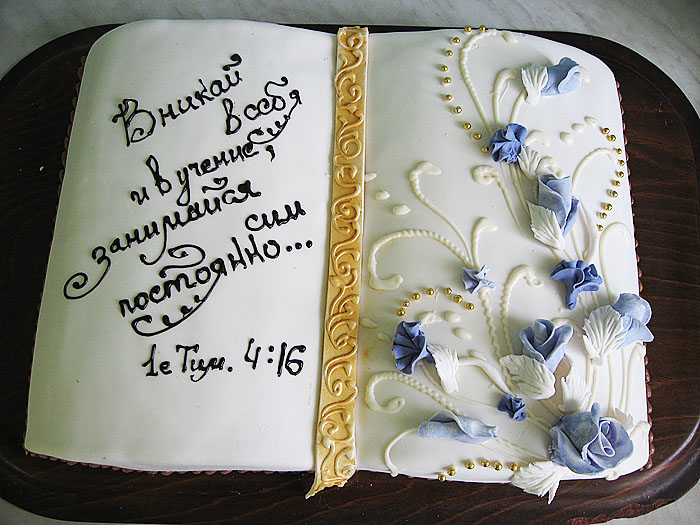 Вникай
в себя
и в учение,
занимайся
сим
постоянно...
1е Тим. 4:16